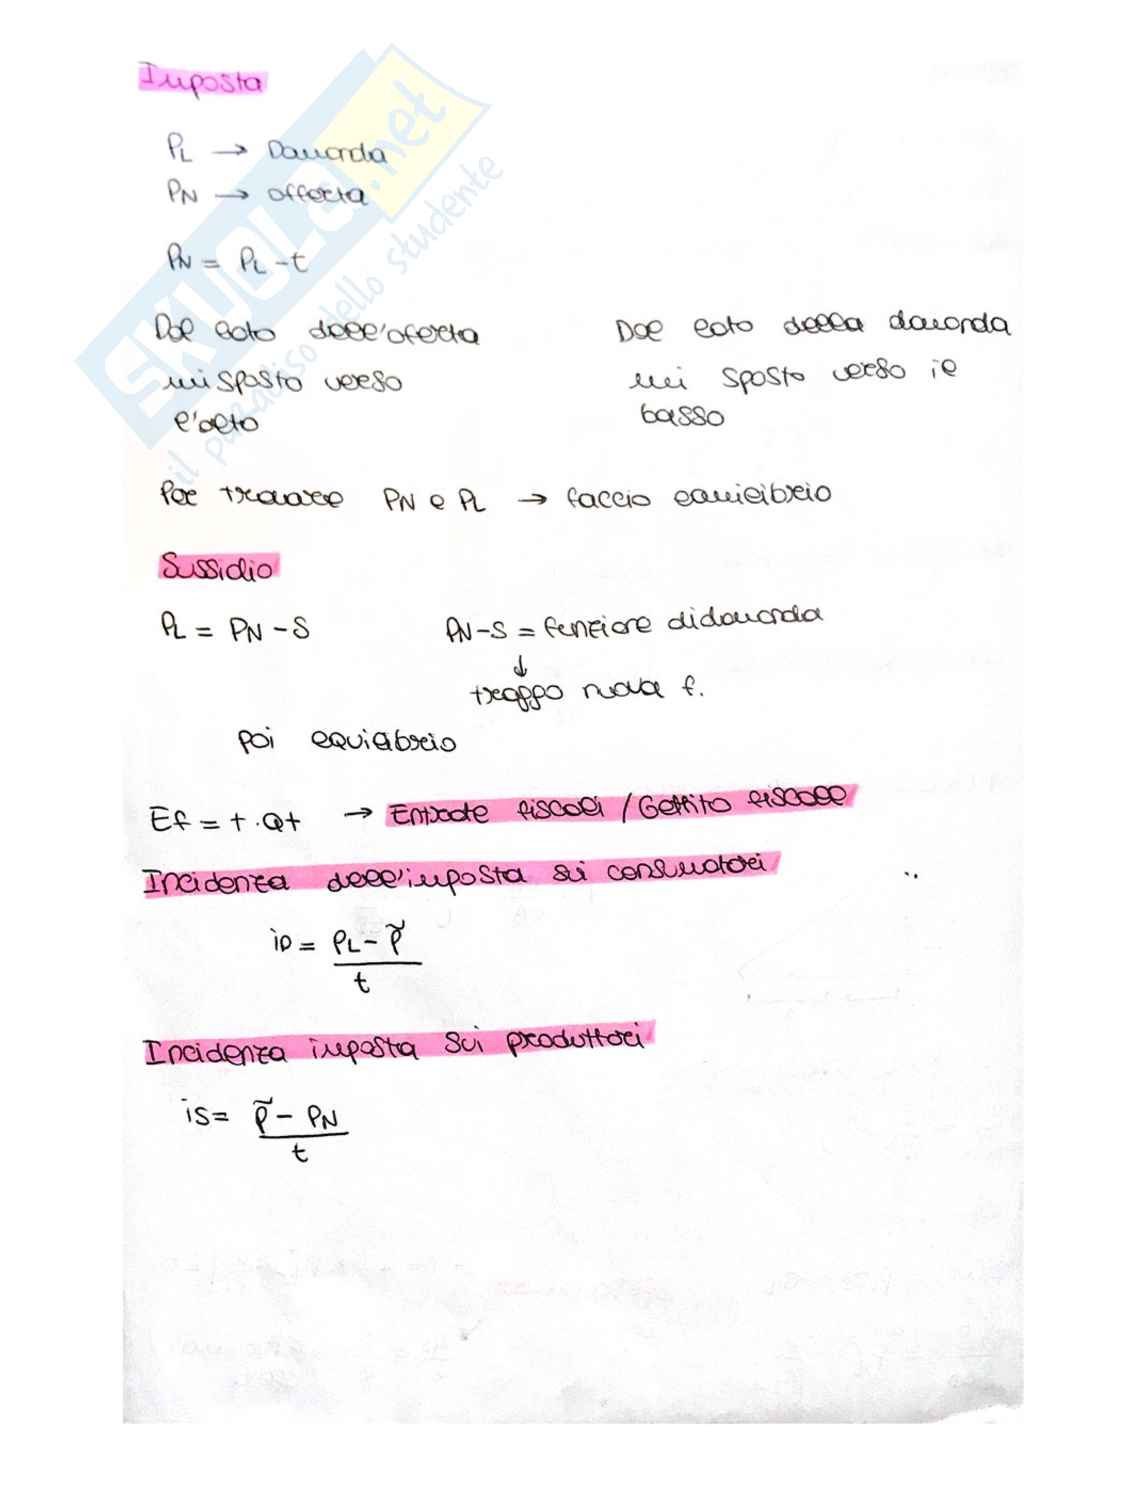 Imposta
PL → Domanda
PN → offerta
PN = PL - t
Dal lato dell'offerta
mi sposto verso
l'alto
Dal lato della domanda
mi sposto verso il
basso
Per trovare PN e PL → faccio equilibrio
Sussidio
PL = PN - S
PN - S = funzione di domanda
↓
traggo nuova f.
poi equilibrio
Ef = t · Qt → Entrate fiscali / Gettito fiscale
Incidenza dell'imposta sui consumatori
iD = PL - P̃
t
Incidenza imposta sui produttori
iS = P̃ - PN
t
SKUOLA.net
il paradiso dello studente